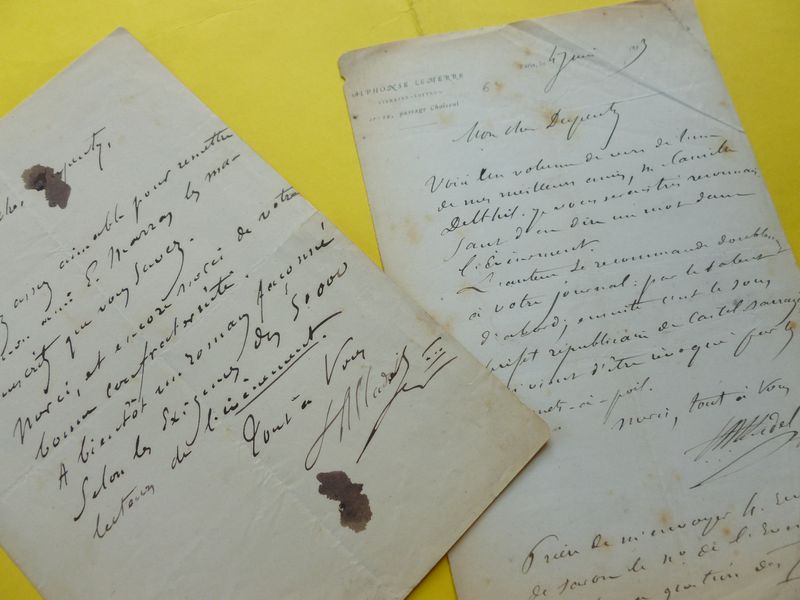 cher
assez aimable pour remettre
mon ami E. Marras les ma-
nuscrits que vous savez.
Merci, et encore merci de votre
bonne confraternité.
A bientôt un roman façonné
selon les exigences des 50,000
lecteurs de l'événement.
Tout à Vous
ALPHONSE LEMERRE
LIBRAIRE-ÉDITEUR
passage Choiseul
Paris, le 4 juin
6
Mon cher Dupentz
Voici un volume de vers de l'un
de mes meilleurs amis, M. Camille
Delthil. Je vous serai très reconnais-
sant d'en dire un mot dans
l'Evénement.
L'auteur se recommande doublement
à votre journal: par le talent
d'abord; ensuite c'est le sous
préfet républicain de Castel Sarrazin
vient d'être révoqué par
Merci, tout à Vous
Prière de m'envoyer
le no. de l'Even
question des